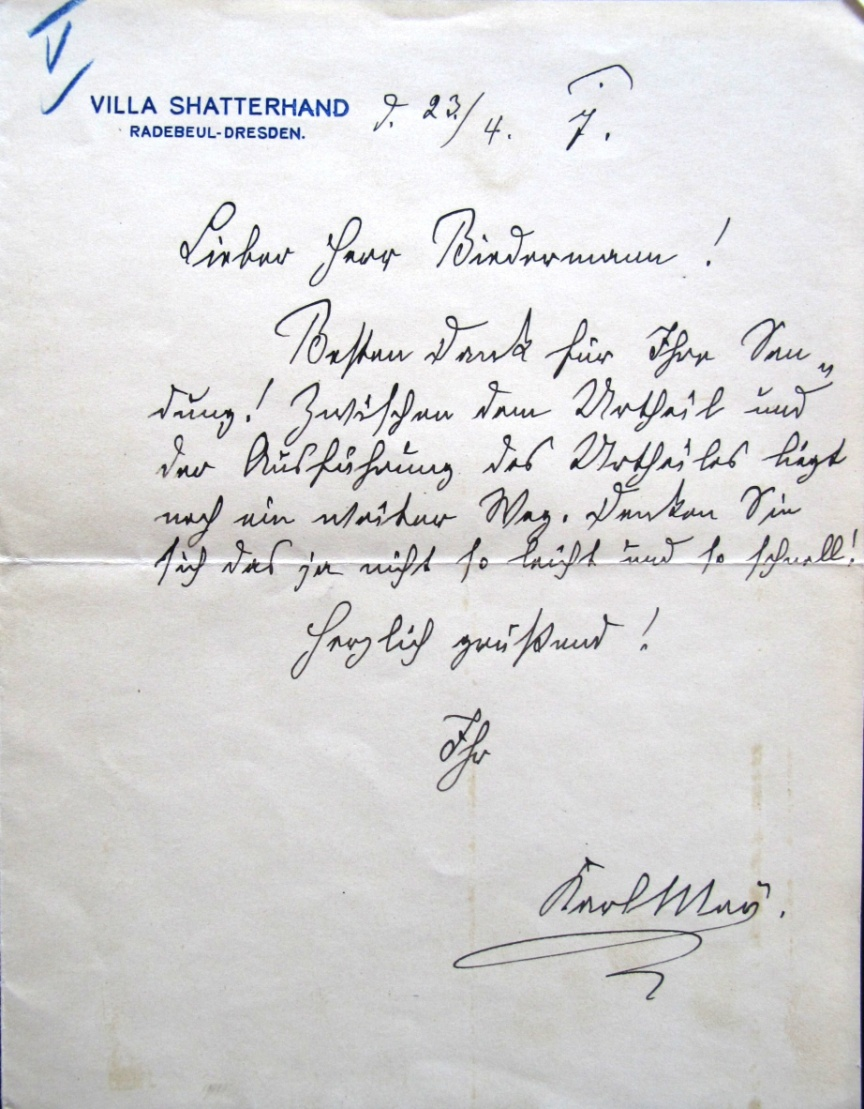 V
VILLA SHATTERHAND
RADEBEUL-DRESDEN.
d. 23/4. 7.
Lieber Herr Biedermann!
Besten Dank für Ihre Sen-
dung! Zwischen dem Urtheil und
der Ausführung des Urtheiles liegt
noch ein weiter Weg. Denken Sie
sich das ja nicht so leicht und so schnell!
Herzlich grüßend!
Ihr
Karl May.